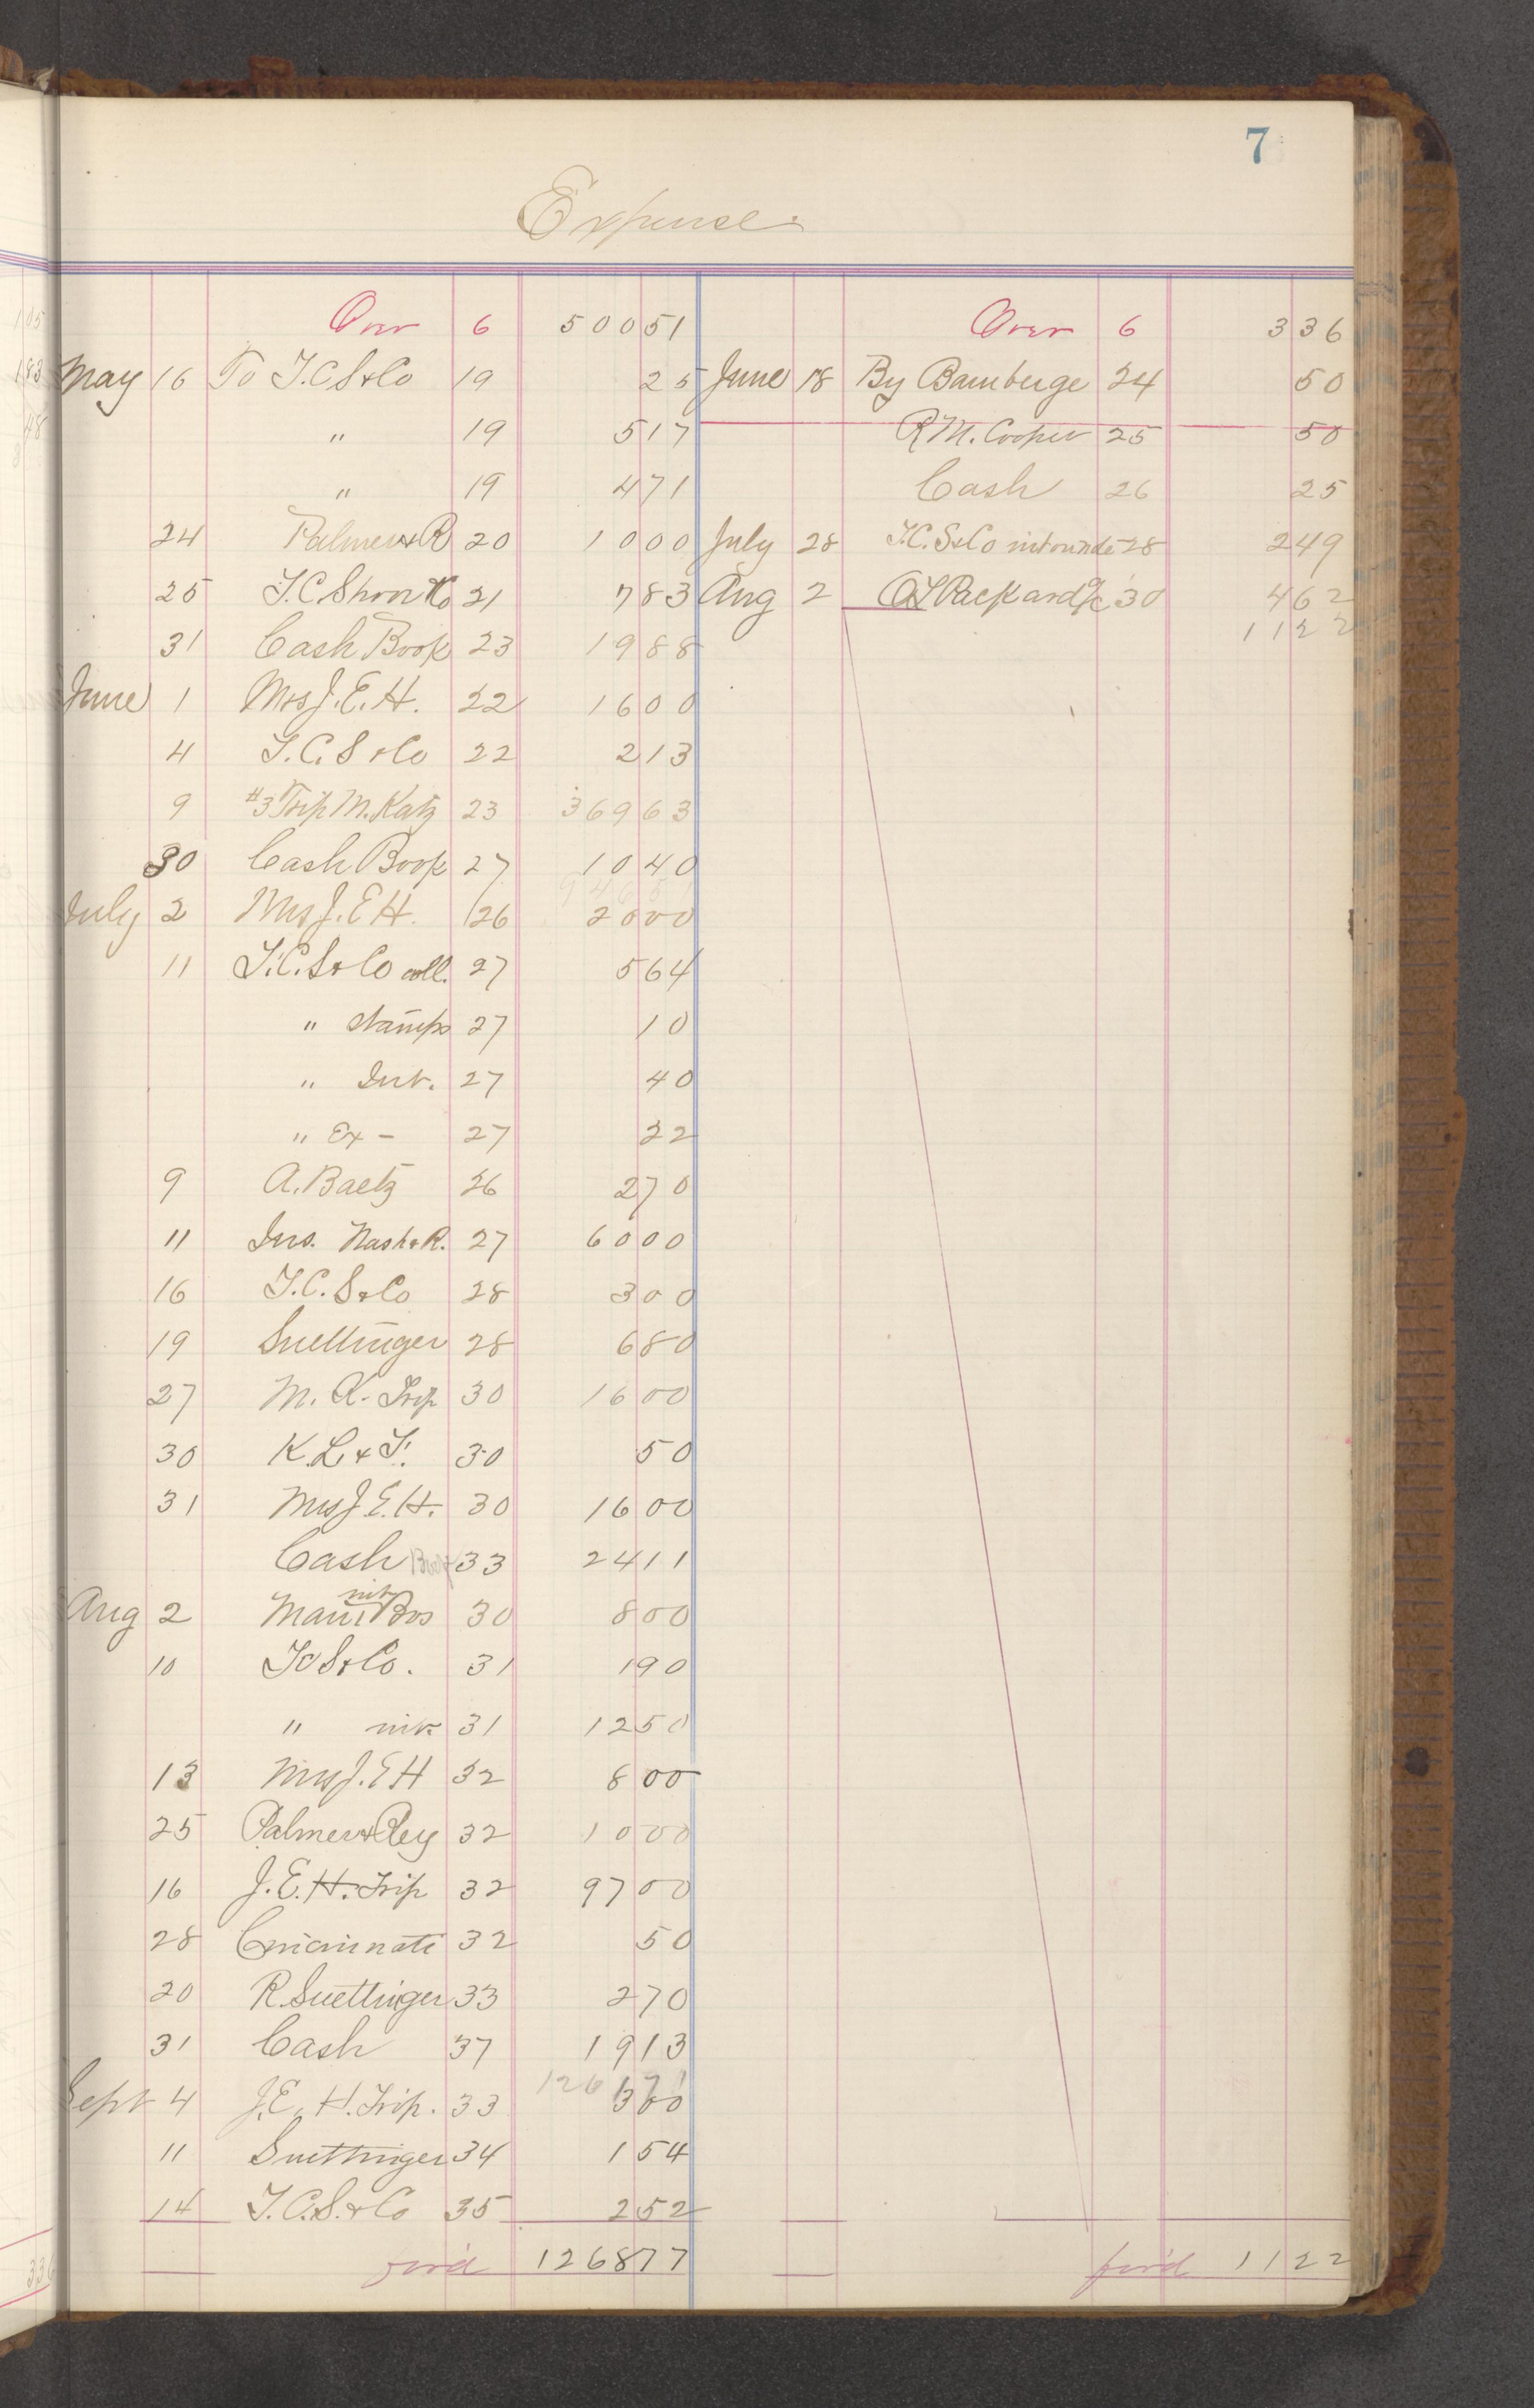 7
Expense
Over 6 500 51
May 16 To T.C.S&Co 19 25
" 19 5 17
" 19 4 71
24 Palmer&R 20 10 00
25 T.C.Shon&Co 21 7 83
31 Cash Book 23 19 88
June 1 Mrs J.E.H. 22 16 00
4 T.C.S&Co 22 2 13
9 #3 Trip M.Katz 23 369 63
30 Cash Book 27 10 40
July 2 Mrs J.E.H. 26 20 00
11 T.C.S&Co coll. 27 5 64
" stamps 27 10
" Int. 27 40
" Ex- 27 22
9 A.Baetz 26 2 70
11 Ins. Nash&R. 27 60 00
16 T.C.S&Co 28 3 00
19 Suettinger 28 6 80
27 M.K. Trip 30 16 00
30 K.L.&T. 30 50
31 Mrs J.E.H. 30 16 00
Cash Book 33 24 11
Aug 2 30 8 00
10 TCS&Co. 31 1 90
" int. 31 12 50
13 Mrs J.E.H 32 8 00
25 Palmer&Rey 32 10 00
16 J.E.H. Trip 32 97 00
28 Cincinnati 32 50
20 R.Suettinger 33 2 70
31 Cash 37 19 13
Sept 4 J.E.H. Trip. 33
11 Suettinger 34 1 54
14 T.C.S.&Co 35 2 52
for'd 1268 77
Over 6 3 36
June 18 By Bamberge 24 50
R.M.Cooper 25 50
Cash 26 25
July 28 T.C.S&Co 28 2 49
Aug 2 Packard 30 4 62
11 22
for'd 11 22